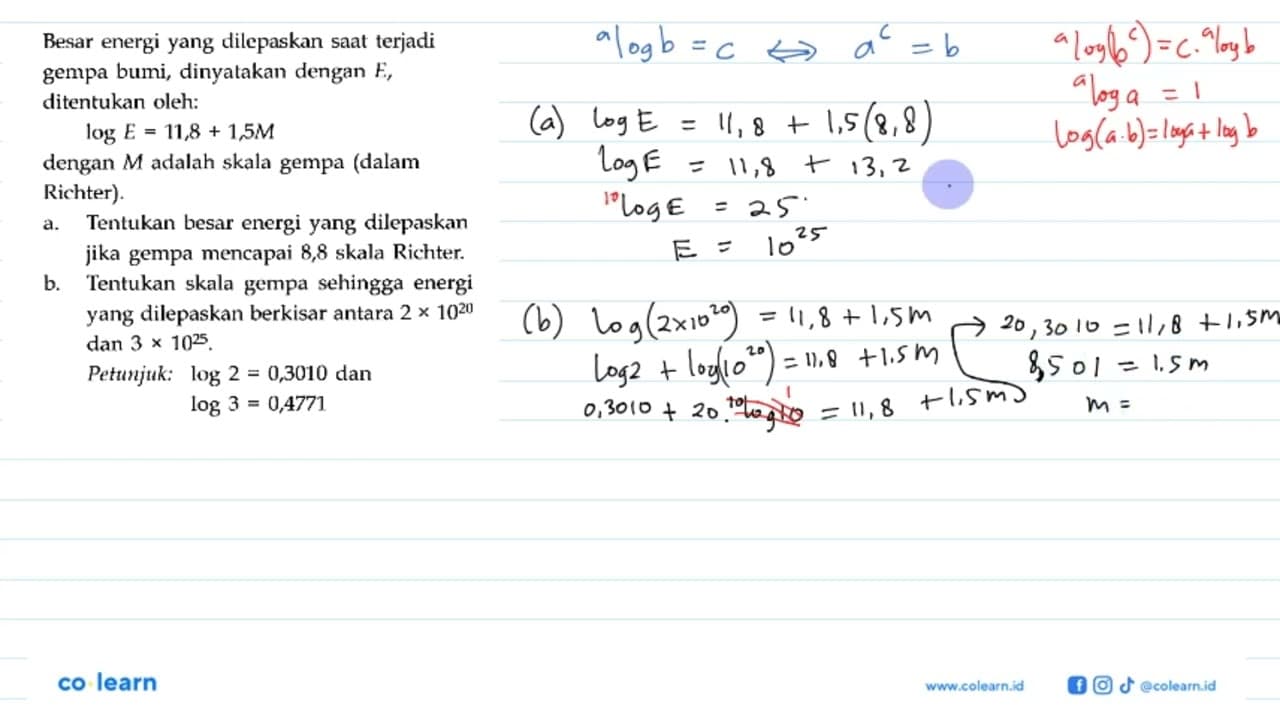 Besar energi yang dilepaskan saat terjadi
gempa bumi, dinyatakan dengan E,
ditentukan oleh:
log E = 11,8 + 1,5M
dengan M adalah skala gempa (dalam
Richter).
a. Tentukan besar energi yang dilepaskan
jika gempa mencapai 8,8 skala Richter.
b. Tentukan skala gempa sehingga energi
yang dilepaskan berkisar antara 2 × 10²⁰
dan 3 × 10²⁵.
Petunjuk: log 2 = 0,3010 dan
log 3 = 0,4771
ᵃlog b = c ⇔ aᶜ = b
ᵃlog(bᶜ) = c. ᵃlog b
ᵃlog a = 1
log(a.b) = log a + log b
(a) log E = 11,8 + 1,5(8,8)
log E = 11,8 + 13,2
¹⁰log E = 25
E = 10²⁵
(b) log(2×10²⁰) = 11,8 + 1,5m
log 2 + log(10²⁰) = 11,8 + 1.5m
0,3010 + 20. ¹⁰log 10 1 = 11,8 + 1.5m
→ 20,3010 = 11,8 + 1.5m
8,501 = 1.5m
m =
co learn
www.colearn.id
@colearn.id